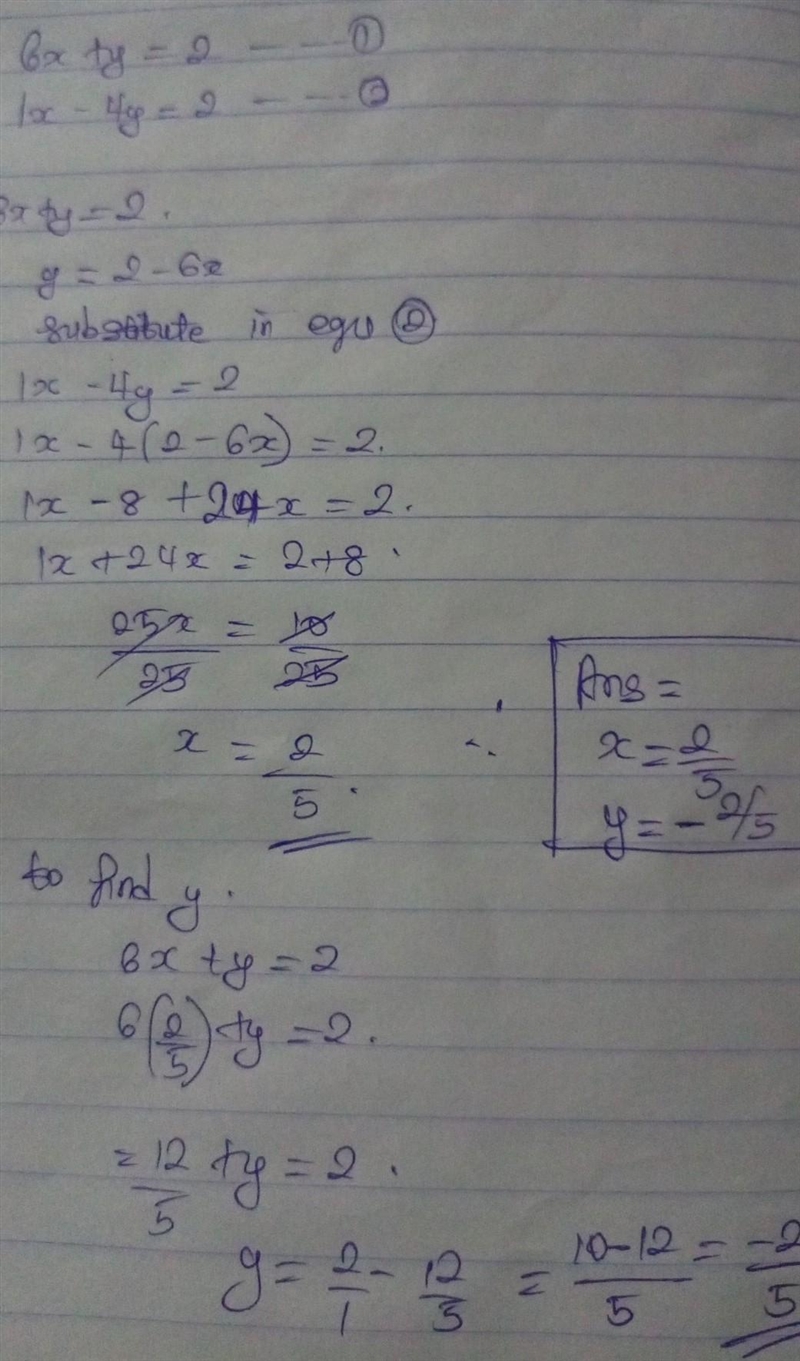 6x + y = 2 — — ①
1x - 4y = 2 — — ②
6x + y = 2.
y = 2 - 6x
substitute in equ ②
1x - 4y = 2
1x - 4(2 - 6x) = 2.
1x - 8 + 24x = 2.
1x + 24x = 2 + 8.
25x/25 = 10/25
x = 2/5.
∴ Ans =
x = 2/5
y = - 2/5
to find y.
6x + y = 2
6(2/5) + y = 2.
= 12/5 + y = 2.
y = 2/1 - 12/5 = 10-12/5 = -2/5